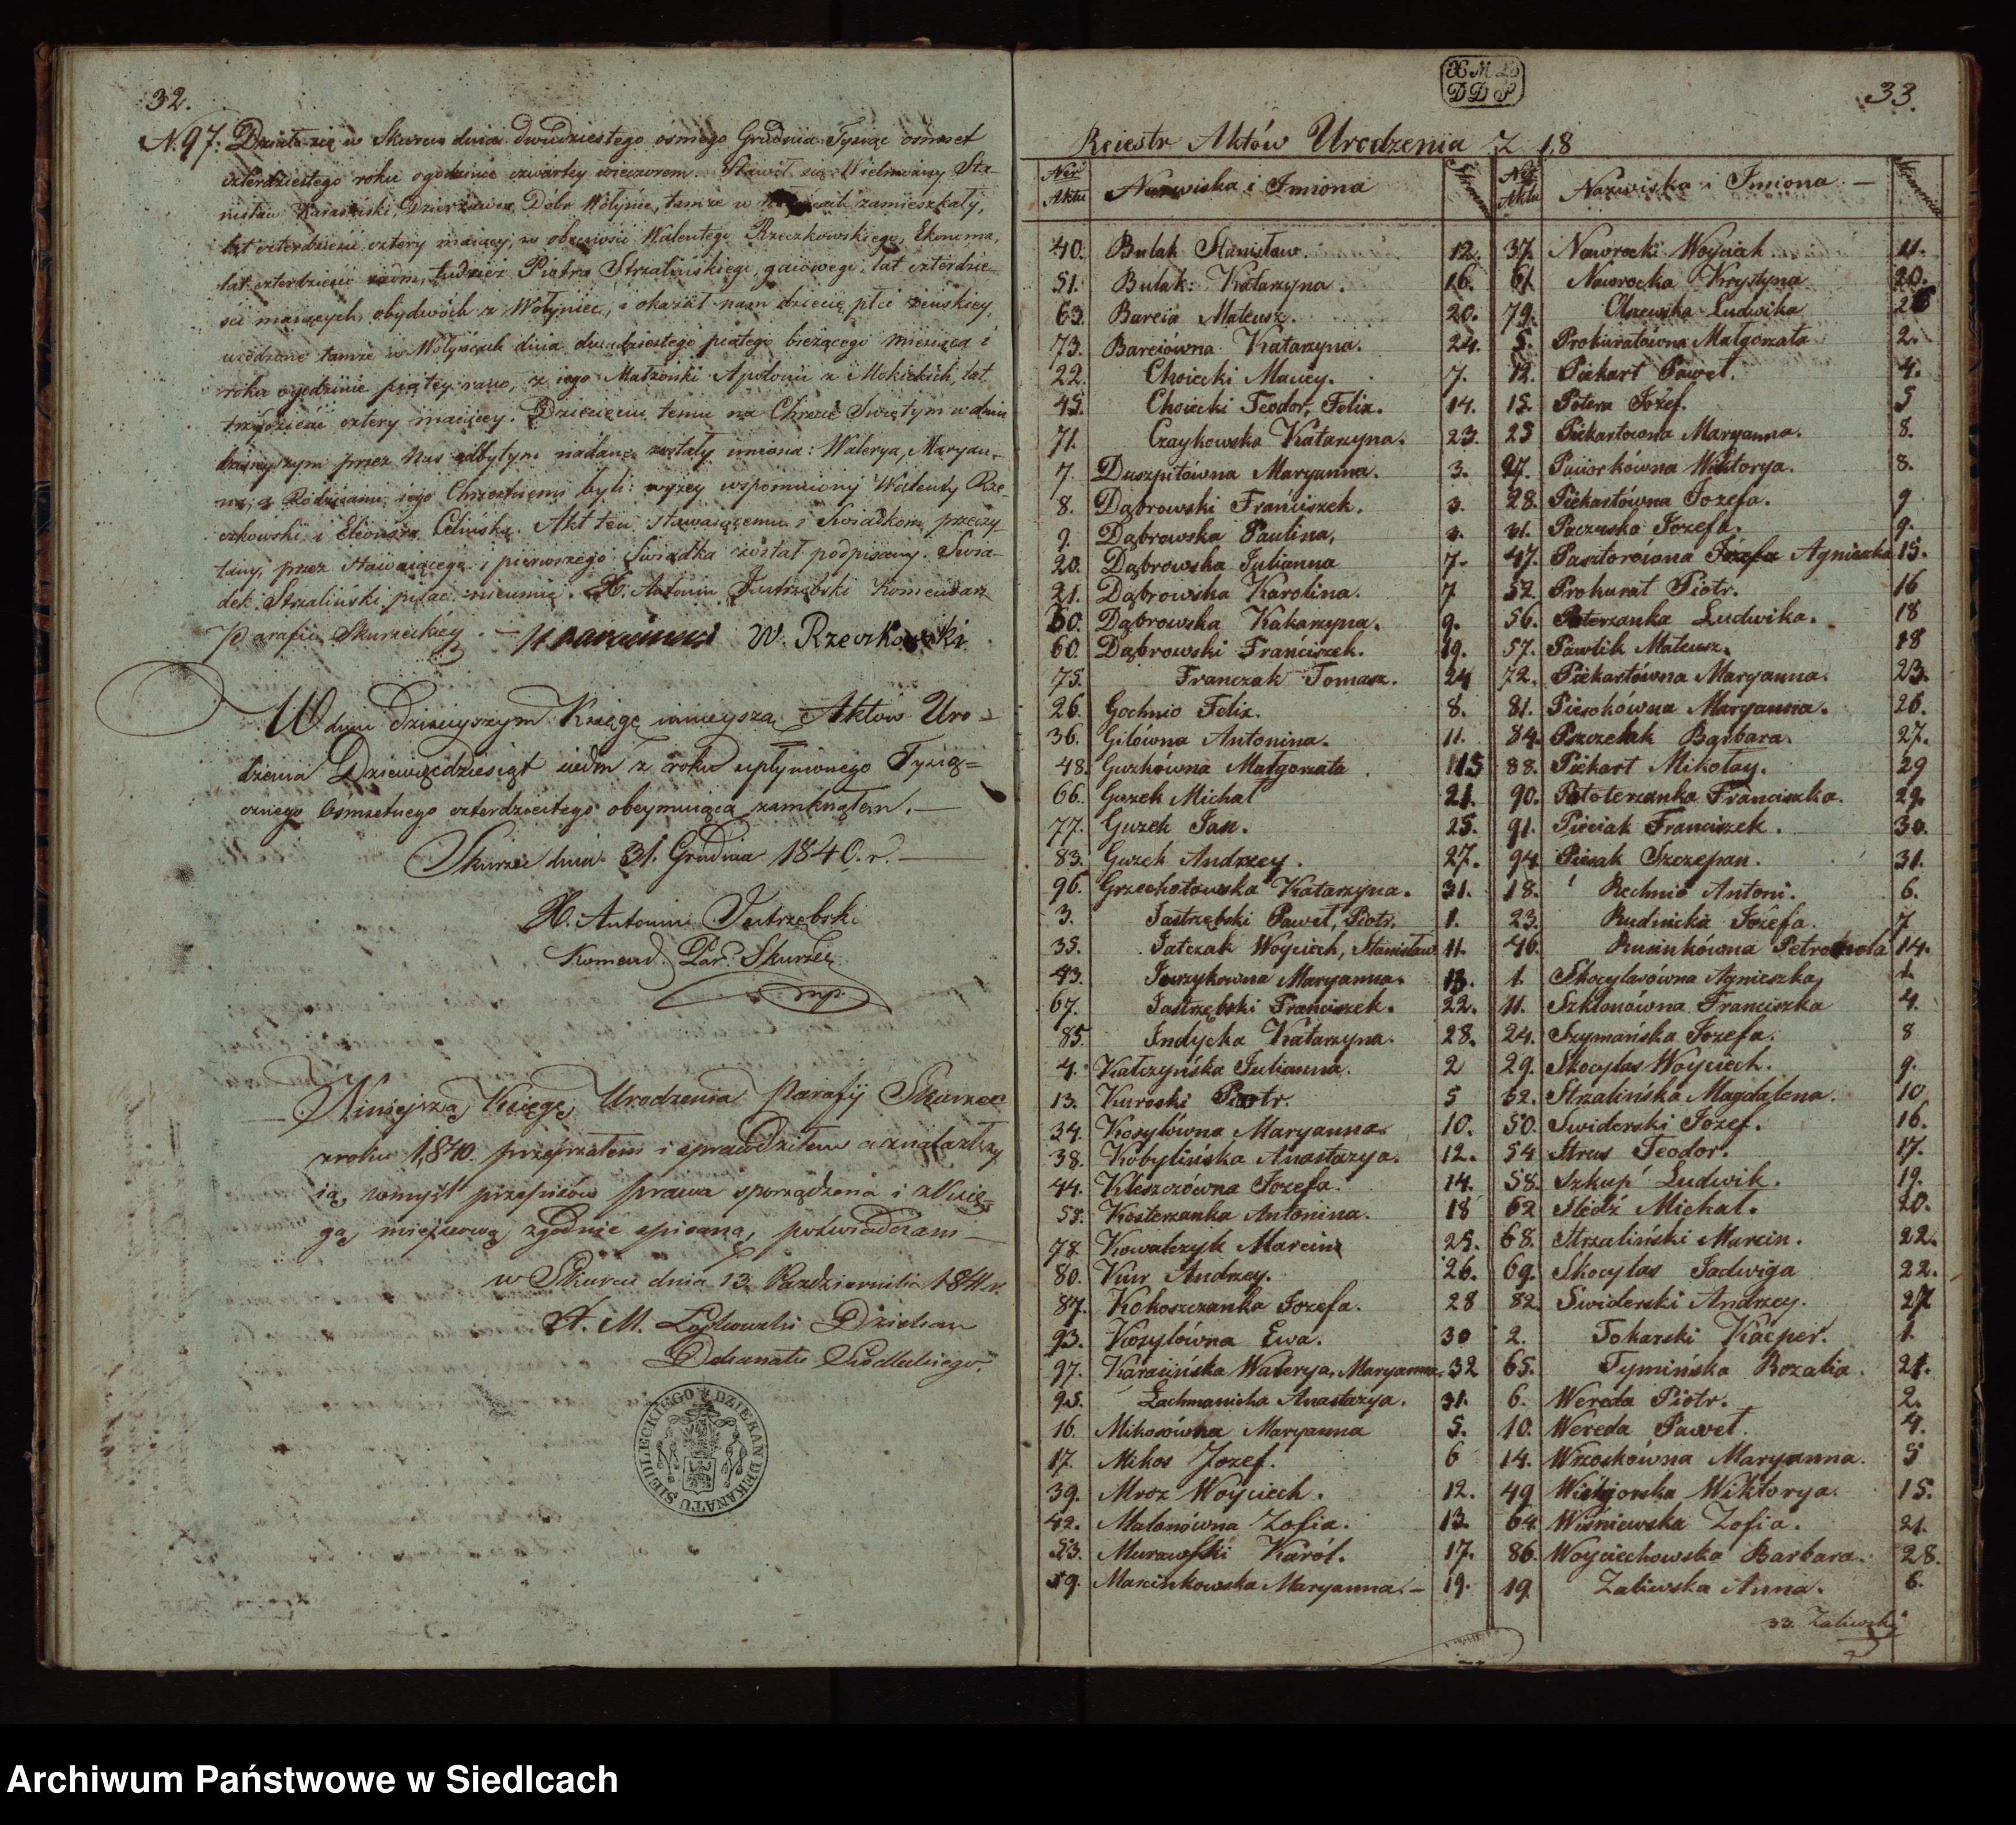 32.
N. 97. Działo się w Skurcu dnia dwudziestego osmego Grudnia Tysiąc osmset
czterdziestego roku o godzinie czwartey wieczorem. Stawił się Wielmożny Sta-
nisław Dzierzawca Dóbr Wołyńce, tamże w zamieszkały,
lat czterdzieści cztery maiący, w obecności Walentego Rzeczkowskiego, Ekonoma,
lat czterdzieści siedm, tudzież Piotra Strzalińskiego, gaiowego, lat czterdzie-
ści maiących, obydwóch z Wołyniec, i okazał nam dziecię płci żeńskiey,
urodzone tamże w Wołyńcach dnia dwudziestego piątego bieżącego miesiąca i
roku o godzinie piątey rano, z iego Małżonki Apolonii z Mokickich, lat
trzydzieści cztery maiącey. Dziecięciu temu na Chrzcie Świętym w dniu
dzisieyszym przez Nas odbytym nadane zostały imiona: Walerya, Maryan-
na, a Rodzicami iego Chrzestnemi byli: wyżey wspomniony Walenty Rze-
czkowski i Eleonora Celińska. Akt ten stawaiącemu i Świadkom przeczy-
tany, przez stawaiącego i pierwszego Świadka został podpisany. Świa-
dek Strzaliński pisać nieumie. X. Antonin Jastrzębski Komendarz
Parafii Skurzeckiey. W. Rzeczkowski
W dniu dzisieyszym Księgę ninieyszą Aktów Uro-
dzenia Dziewięćdziesiąt siedm z roku upłynionego Tysią-
cznego Ośmsetnego czterdziestego obeymuiącą zamknąłem.
Skurzec dnia 31. Grudnia 1840. r.
X. Antonin Jastrzębski
Komend. Par. Skurzec
mp.
Niniejszą Księgę Urodzenia Parafij Skurzec
z roku 1,840. przejrzałem i sprawdziłem a znalazłszy
ią w myśl przepisów prawa sporządzoną i z Księ-
gą miejscową zgodnie spisaną, poświadczam
w Skurcu dnia 13. Października 1841 r.
X. M. Dziekan
Dekanatu Siedleckiego.
DZIEKAN DEKANATU SIEDLECKIEGO
33.
Reiestr Aktów Urodzenia Z 1.8
Ner Aktu Nazwiska i Imiona Stronnica Ner Aktu Nazwiska i Imiona Stronnica
40. Bulak Stanisław. 12. 37. Nawrocki Woyciech 11.
51. Bulak Katarzyna. 16. 61. Nawrocka Krystyna 20.
63. Barcio Mateusz. 20. 79. Olszewska Ludwika 26
73. Barciówna Katarzyna. 24. 5. Prokuratówna Małgorzata 2.
22. Choiecki Maciey. 7. 12. Piekart Paweł. 4.
45. Choiecki Teodor, Felix. 14. 15. Potera Józef. 5
71. Czaykowska Katarzyna. 23. 25 Piekartówna Maryanna. 8.
7. Duszpitówna Maryanna. 3. 27. Paciorkówna Wiktorya. 8.
8. Dąbrowski Franciszek. 3. 28. Piekartówna Jozefa. 9
9. Dąbrowska Paulina. 3. 31. Paczuska Jozefa. 9.
20. Dąbrowska Julianna 7. 47. Pasztorówna Józefa Agnieszka 15.
21. Dąbrowska Karolina. 7 52. Prokurat Piotr. 16
30. Dąbrowska Katarzyna. 9. 56. Poterzanka Ludwika. 18
60. Dąbrowski Franciszek. 19. 57. Pawlik Mateusz. 18
75. Franczak Tomasz. 24 72. Piekartówna Maryanna. 23.
26. Gochnio Felix. 8. 81. Piesokówna Maryanna. 26.
36. Gilówna Antonina. 11. 84. Pszczelak Barbara. 27.
48. Guzkówna Małgorzata 15 88. Piekart Mikołay. 29
66. Guzek Michał 21. 90. Pototerzanka Franciszka. 29.
77. Guzek Jan. 25. 91. Pieciak Franciszek. 30.
83. Guzek Andrzey. 27. 94. Piesak Szczepan. 31.
96. Grzechotowska Katarzyna. 31. 18. Rechnio Antoni. 6.
3. Jastrzębski Paweł, Piotr. 1. 23. Rudnicka Józefa. 7
35. Jatczak Woyciech, Stanisław 11. 46. Rusinkówna Petronela 14.
43. Jurzykowna Maryanna. 13. 1. Skocylasówna Agnieszka 1.
67. Jastrzębski Franciszek. 22. 11. Szklonówna Franciszka 4.
85. Indycka Katarzyna. 28. 24. Szymańska Jozefa. 8
4. Kałczyńska Julianna. 2 29. Skocylas Woyciech. 9.
13. Kurocki Piotr. 5 32. Strzalińska Magdalena. 10
34. Kosylówna Maryanna. 10. 50. Swiderski Józef. 16.
38. Kobylińska Anastazya. 12. 54 Strus Teodor. 17.
44. Kleszczówna Jozefa. 14. 58. Szkup Ludwik. 19.
55. Kosterzanka Antonina. 18 62 Sledź Michał. 20.
78. Kowalczyk Marcin 25. 68. Strzaliński Marcin. 22.
80. Kur Andrzey. 26. 69. Skocylas Jadwiga 22.
87. Kokoszczanka Jozefa. 28 82. Swiderski Andrzey. 27
93. Kosylówna Ewa. 30 2. Tokarski Kacper. 1.
97. Karasińska Walerya, Maryanna. 32 65. Tymińska Rozalia. 21.
95. Lachmanicka Anastazya. 31. 6. Wereda Piotr. 2.
16. Mikosówna Maryanna 5. 10. Wereda Paweł. 4.
17. Mikos Jozef. 6 14. Wrzoskówna Maryanna. 5
39. Mroz Woyciech. 12. 49 Wiktorya. 15.
42. Malonówna Zofia. 13. 64. Wiśniewska Zofia. 21.
53. Murawski Karol. 17. 86. Woyciechowska Barbara. 28.
59. Marcinkowska Maryanna. 19. 19. Zaliwska Anna. 6.
33. Zaliwski
Archiwum Państwowe w Siedlcach